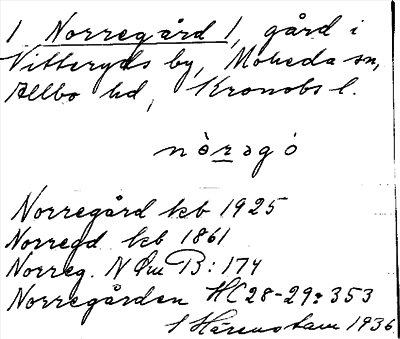 1 Norregård 1, gård i
Vitteryds by, Moheda sn,
Allbo hd, Kronobs l.
nòrəgó
Norregård kb 1925
Norregd kb 1861
Norreg. N Øm B: 174
Norregården HC 28-29: 353
S Härenstam 1936